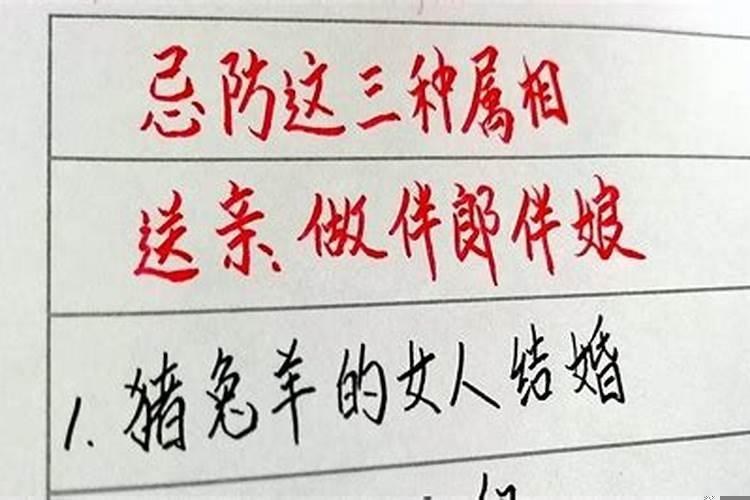 忌防这三种属相
送亲、做伴郎伴娘
1. 猪兔羊的女人结婚